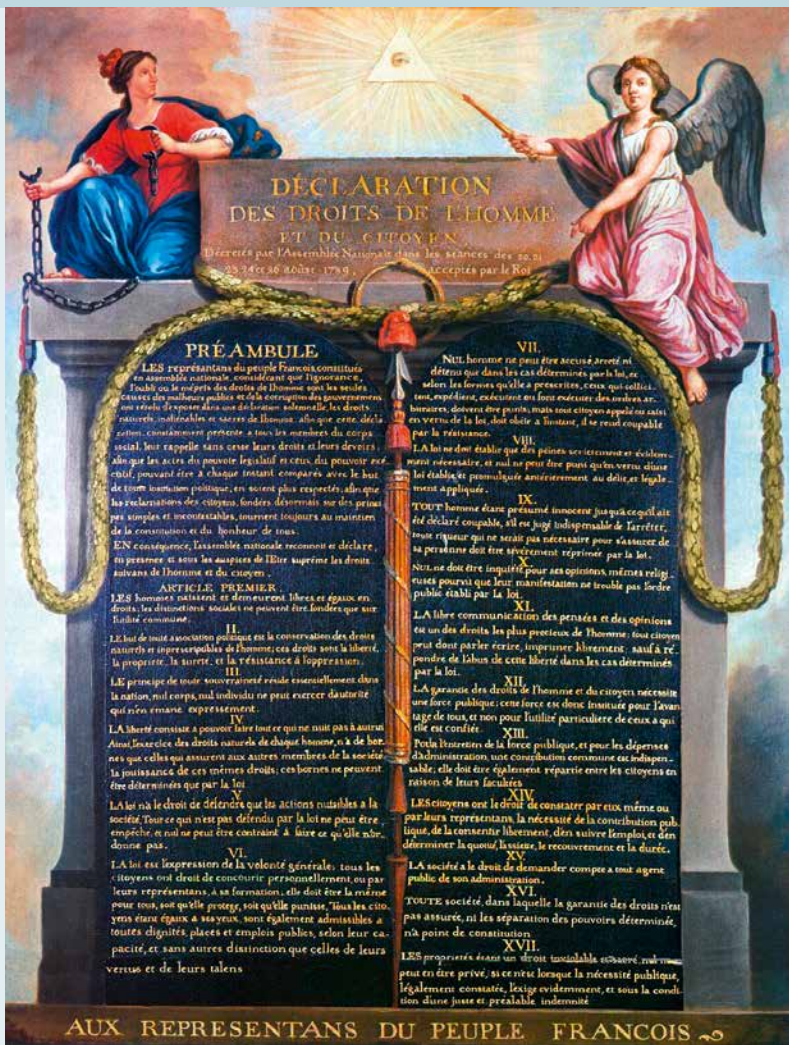 DÉCLARATION
DES DROITS DE L'HOMME
ET DU CITOYEN,
Décretés par l'Assemblée Nationale dans les séances des 20. 21
23. 24 et 26 août 1789, acceptés par le Roi
PRÉAMBULE
LES représentans du peuple François, constitués
en assemblée nationale, considérant que l'ignorance,
l'oubli ou le mépris des droits de l'homme sont les seules
causes des malheurs publics et de la corruption des gouvernemens
ont résolu d'exposer dans une déclaration solemnelle, les droits
naturels, inaliénables et sacrés de l'homme; afin que cette décla
ration, constamment présente a tous les membres du corps
social, leur rappelle sans cesse leurs droits et leurs devoirs;
afin que les actes du pouvoir législatif et ceux du pouvoir exé
cutif, pouvant être à chaque instant comparés avec le but
de toute institution politique, en soient plus respectés; afin que
les réclamations des citoyens, fondées désormais sur des princi
pes simples et incontestables, tournent toujours au maintien
de la constitution et du bonheur de tous.
EN conséquence, l'assemblée nationale reconnoit et déclare,
en présence et sous les auspices de l'Etre suprême les droits
suivans de l'homme et du citoyen.
ARTICLE PREMIER.
LES hommes naissent et demeurent libres et égaux en
droits; les distinctions sociales ne peuvent être fondées que sur
l'utilité commune.
II.
LE but de toute association politique est la conservation des droits
naturels et inprescriptibles de l'homme; ces droits sont la liberté,
la propriété, la sureté, et la résistance à l'oppression.
III.
LE principe de toute souveraineté réside essentiellement dans
la nation, nul corps, nul individu ne peut exercer d'autorité
qui n'en émane expressement.
IV.
LA liberté consiste a pouvoir faire tout ce qui ne nuit pas à autrui
Ainsi, l'exercice des droits naturels de chaque homme, n'a de bor-
nes que celles qui assurent aux autres membres de la société
la jouissance de ces mêmes droits; ces bornes ne peuvent
être déterminées que par la loi
V.
LA loi n'a le droit de défendre que les actions nuisibles à la
société. Tout ce qui n'est pas défendu par la loi ne peut être
empêché, et nul ne peut être contraint à faire ce qu'elle n'or-
donne pas.
VI.
LA loi est l'expression de la volonté générale; tous les
citoyens ont droit de concourir personnellement, ou par
leurs représentans, à sa formation; elle doit être la même
pour tous, soit qu'elle protege, soit qu'elle punisse. Tous les cito
yens étant égaux à ses yeux, sont également admissibles a
toutes dignités, places et emplois publics, selon leur ca-
pacité, et sans autres distinction que celles de leurs
vertus et de leurs talens
VII.
NUL homme ne peut être accusé, arreté ni
détenu que dans les cas déterminés par la loi, et
selon les formes qu'elle a prescrites, ceux qui sollici-
tent, expédient, exécutent ou font exécuter des ordres ar-
bitraires, doivent être punis; mais tout citoyen appelé ou saisi
en vertu de la loi, doit obéir a l'instant, il se rend coupable
par la résistance.
VIII.
LA loi ne doit établir que des peines strictement et évidem-
ment nécessaire, et nul ne peut être puni qu'en vertu d'une
loi établie et promulguée antérieurement au délit, et légale-
ment appliquée.
IX.
TOUT homme étant présumé innocent jusqu'a ce qu'il ait
été déclaré coupable, s'il est jugé indispensable de l'arrêter,
toute rigueur qui ne serait pas nécessaire pour s'assurer de
sa personne doit être sévèrement réprimée par la loi.
X.
NUL ne doit être inquiété pour ses opinions, mêmes religi-
euses pourvu que leur manifestation ne trouble pas l'ordre
public établi par la loi.
XI.
LA libre communication des pensées et des opinions
est un des droits les plus precieux de l'homme; tout citoyen
peut dont parler écrire, imprimer librement; sauf a ré-
pondre de l'abus de cette liberté dans les cas déterminés
par la loi.
XII.
LA garantie des droits de l'homme et du citoyen nécessite
une force publique; cette force est donc instituée pour l'avan
tage de tous, et non pour l'utilité particuliere de ceux a qui
elle est confiée.
XIII.
POUR l'entretien de la force publique, et pour les dépenses
d'administration, une contribution commune est indispen-
sable; elle doit être également répartie entre les citoyens en
raison de leurs facultées
XIV.
LES citoyens ont le droit de constater par eux même ou
par leurs représentans, la nécessité de la contribution pub-
lique, de la consentir librement, d'en suivre l'emploi, et d'en
déterminer la quotité, l'assiette, le recouvrement et la durée.
XV.
LA société a le droit de demander compte a tout agent
public de son administration.
XVI.
TOUTE société, dans laquelle la garantie des droits n'est
pas assurée, ni les séparation des pouvoirs déterminée,
n'a point de constitution
XVII.
LES proprietés étant un droit inviolable et sacré, nul ne
peut en être privé, si ce n'est lorsque la nécessité publique,
légalement constatée, l'exige evidemment, et sous la condi
tion d'une juste et préalable indemnité
AUX REPRESENTANS DU PEUPLE FRANCOIS